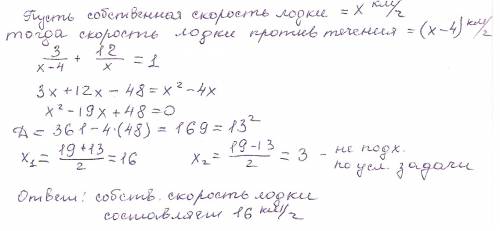 Пусть собственная скорость лодки = x км/г
тогда скорость лодки против течения = (x-4) км/г
3/(x-4) + 12/x = 1
3x + 12x - 48 = x² - 4x
x² - 19x + 48 = 0
Д = 361 - 4·(48) = 169 = 13²
x₁ = (19+13)/2 = 16 x₂ = (19-13)/2 = 3 - не подх. по усл. задачи
Ответ: собств. скорость лодки
составляет 16 км/г